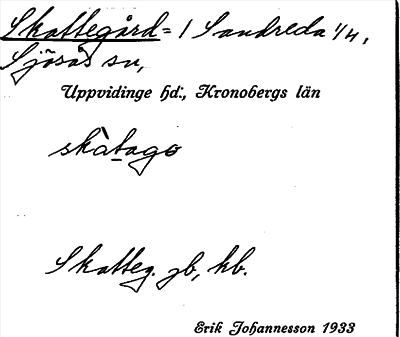 Skattegård = 1 Sandreda 1/4,
Sjösås sn,
Uppvidinge hd., Kronobergs län
skàtago
Skatteg. jb, kb.
Erik Johannesson 1933